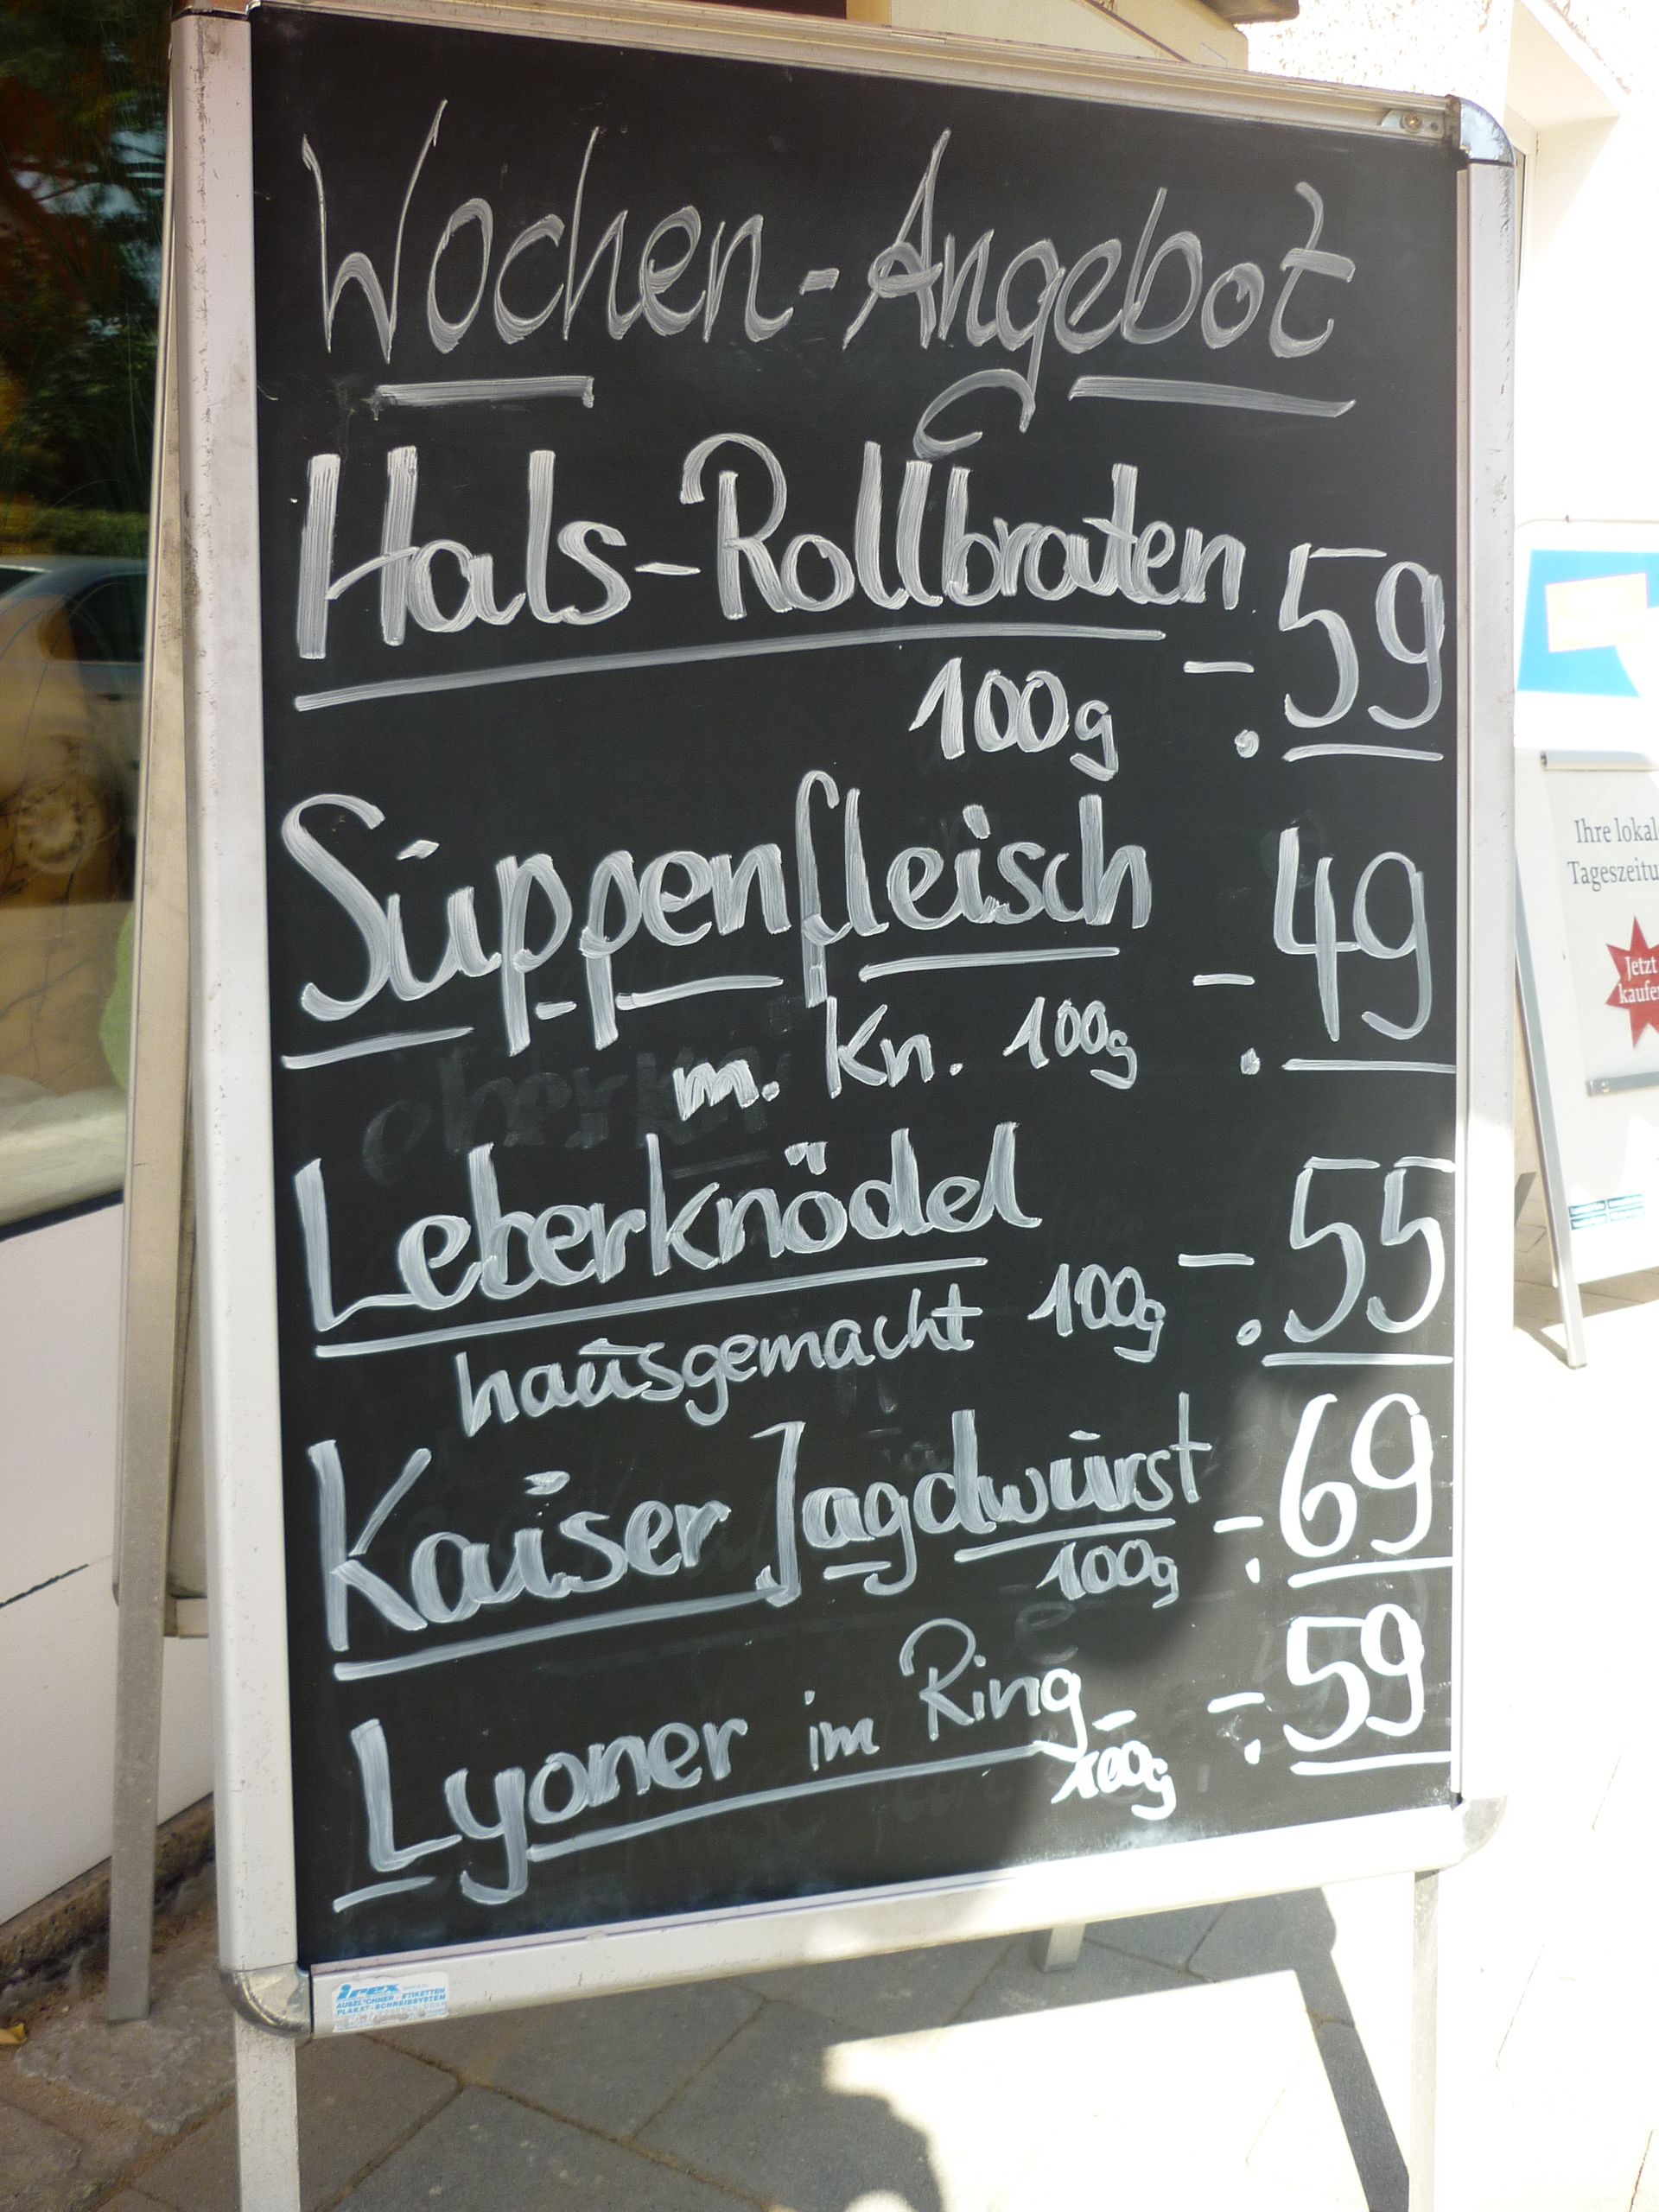 Wochen-Angebot
Hals-Rollbraten
100g -.59
Suppenfleisch
m. Kn. 100g -.49
Leberknödel
hausgemacht 100g -.55
Kaiser Jagdwurst
100g -.69
Lyoner im Ring
100g -.59
Ihre lokal
Tageszeitu
Jetzt
kaufe
irex
AUSZEICHNER - ETIKETTEN
PLAKAT - SCHREIBSYSTEM